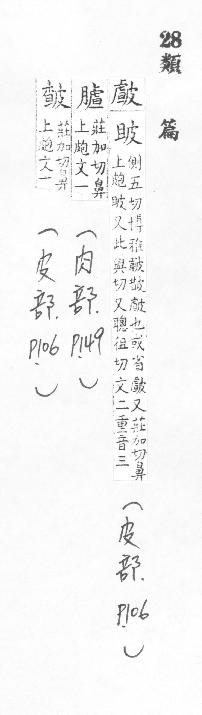 28類篇
皻
皵 側五切博雅皽皵皻也或省皻又莊加切鼻
上皰皵又此與切又聰徂切文二重音三
(皮部. P.106)
臚 莊加切鼻
上皰文一
(肉部. P.149)
莊加切鼻
上皰文一
(皮部. P.106)